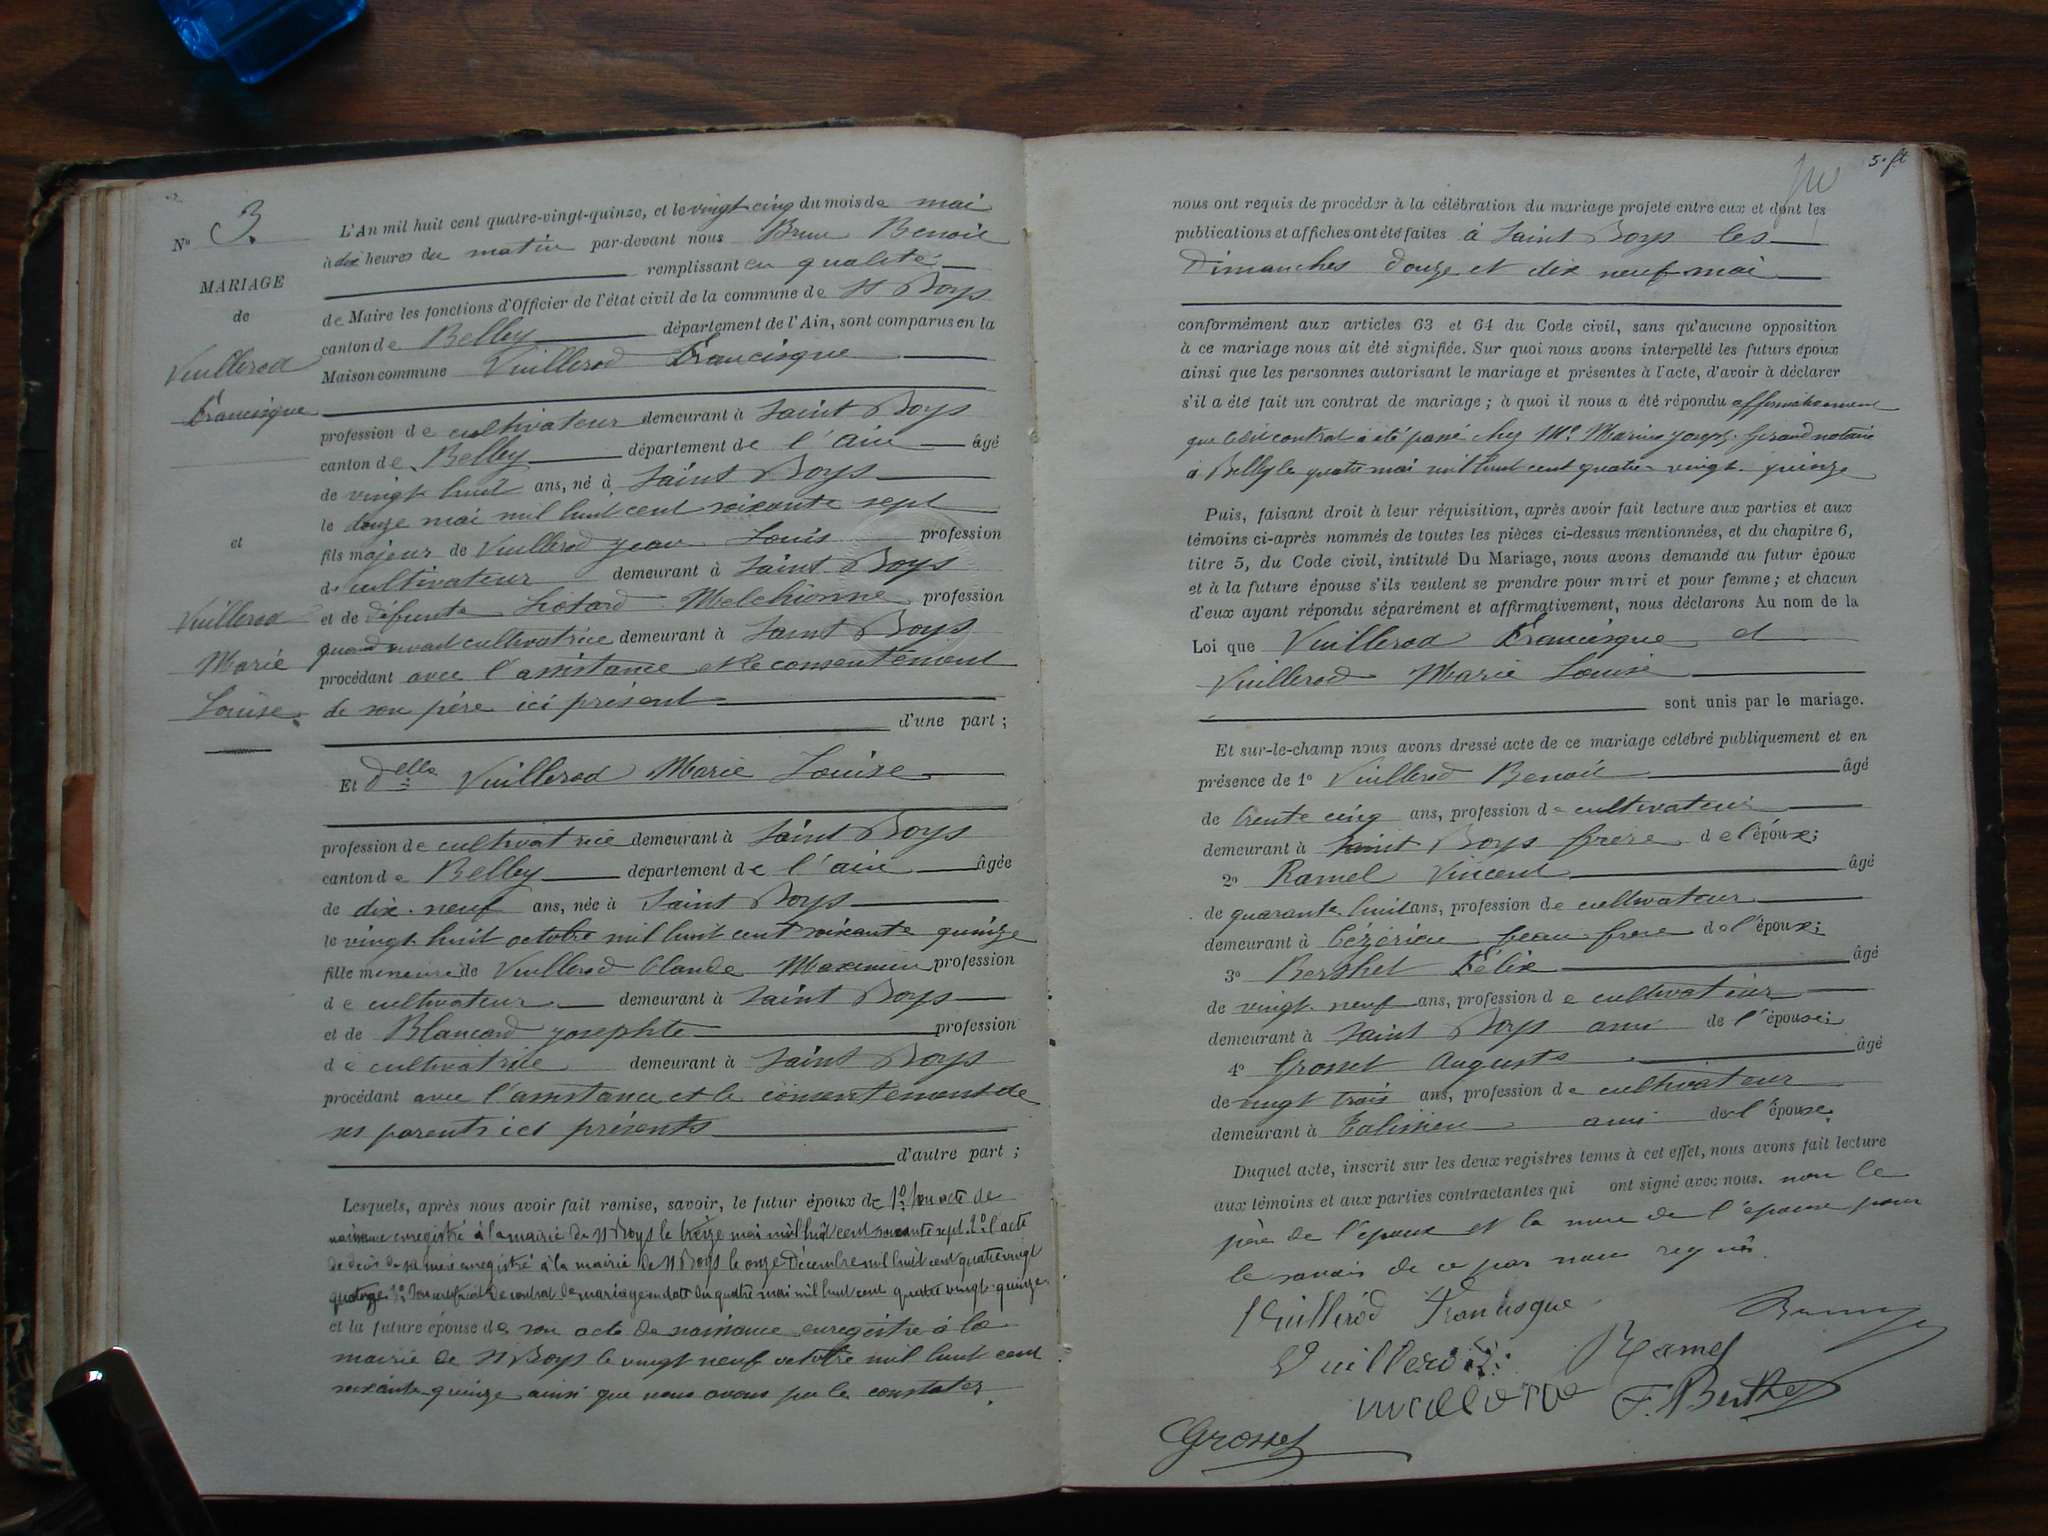 N° 3.
MARIAGE
de
Vuillerod
Francisque
et
Vuillerod
Marie
Louise.
L'An mil huit cent quatre-vingt-quinze, et le vingt cinq du mois de mai
à dix heures du matin par-devant nous Brun Benoit
remplissant en qualité
de Maire les fonctions d'Officier de l'état civil de la commune de St Boys
canton de Belley département de l'Ain, sont comparus en la
Maison commune Vuillerod Francisque
profession de cultivateur demeurant à Saint Boys
canton de Belley département de l'Ain âgé
de vingt huit ans, né à Saint Boys
le douze mai mil huit cent soixante sept
fils majeur de Vuillerod Jean Louis profession
de cultivateur demeurant à Saint Boys
et de défunte Liotard Melchionne profession
quand vivait cultivatrice demeurant à Saint Boys
procédant avec l'assistance et le consentement
de son père ici présent
d'une part ;
Et delle Vuillerod Marie Louise
profession de cultivatrice demeurant à Saint Boys
canton de Belley département de l'Ain âgée
de dix-neuf ans, née à Saint Boys
le vingt huit octobre mil huit cent soixante quinze
fille mineure de Vuillerod Claude Maximin profession
de cultivateur demeurant à Saint Boys
et de Blancard Josephte profession
de cultivatrice demeurant à Saint Boys
procédant avec l'assistance et le consentement de
ses parents ici présents
d'autre part ;
Lesquels, après nous avoir fait remise, savoir, le futur époux de 1° son acte de
naissance enregistré à la mairie de St Boys le treize mai mil huit cent soixante sept. 2° l'acte
de décès de sa mère enregistré à la mairie de St Boys le onze Décembre mil huit cent quatre vingt
quatorze 3° Son certificat de contrat de mariage en date du quatre mai mil huit cent quatre vingt-quinze
et la future épouse de son acte de naissance enregistré à la
mairie de St Boys le vingt neuf octobre mil huit cent
soixante quinze ainsi que nous avons pu le constater.
5. ft
nous ont requis de procéder à la célébration du mariage projeté entre eux et dont les
publications et affiches ont été faites à Saint Boys les
Dimanches douze et dix neuf mai
conformément aux articles 63 et 64 du Code civil, sans qu'aucune opposition
à ce mariage nous ait été signifiée. Sur quoi nous avons interpellé les futurs époux
ainsi que les personnes autorisant le mariage et présentes à l'acte, d'avoir à déclarer
s'il a été fait un contrat de mariage ; à quoi il nous a été répondu affirmativement
que ledit contrat a été passé chez Me Marius Joseph notaire
à Belley le quatre mai mil huit cent quatre-vingt-quinze
Puis, faisant droit à leur réquisition, après avoir fait lecture aux parties et aux
témoins ci-après nommés de toutes les pièces ci-dessus mentionnées, et du chapitre 6,
titre 5, du Code civil, intitulé Du Mariage, nous avons demandé au futur époux
et à la future épouse s'ils veulent se prendre pour mari et pour femme ; et chacun
d'eux ayant répondu séparément et affirmativement, nous déclarons Au nom de la
Loi que Vuillerod Francisque et
Vuillerod Marie Louise
sont unis par le mariage.
Et sur-le-champ nous avons dressé acte de ce mariage célébré publiquement et en
présence de 1° Vuillerod Benoit âgé
de trente cinq ans, profession de cultivateur
demeurant à Saint Boys frère de l'époux ;
2° Ramel Vincent âgé
de quarante huit ans, profession de cultivateur
demeurant à Cézérieu beau-frère de l'époux ;
3° Berthet Félix âgé
de vingt-neuf ans, profession de cultivateur
demeurant à Saint Boys ami de l'épouse ;
4° Grosset Auguste âgé
de vingt trois ans, profession de cultivateur
demeurant à Talissieu ami de l'épouse.
Duquel acte, inscrit sur les deux registres tenus à cet effet, nous avons fait lecture
aux témoins et aux parties contractantes qui ont signé avec nous. non le
père de l'époux et la mère de l'épouse pour
le savoir de ce par nous requis
Vuillerod Francisque
Vuillerod
Ramel
Vuillerod
F. Berthet
Grosset